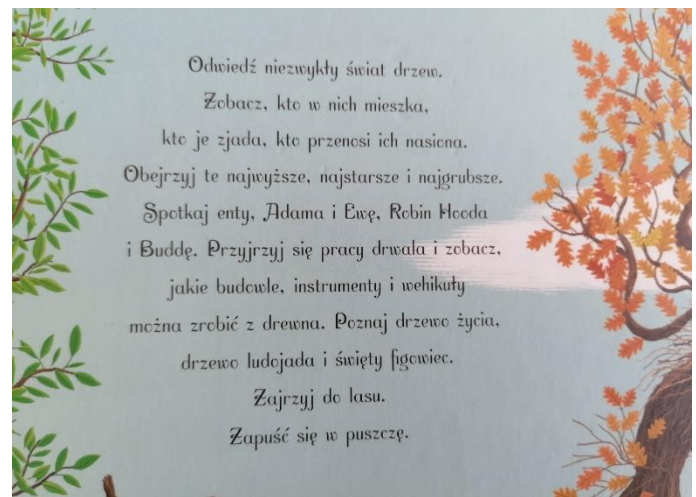 Odwiedź niezwykły świat drzew.
Zobacz, kto w nich mieszka,
kto je zjada, kto przenosi ich nasiona.
Obejrzyj te najwyższe, najstarsze i najgrubsze.
Spotkaj enty, Adama i Ewę, Robin Hooda
i Buddę. Przyjrzyj się pracy drwala i zobacz,
jakie budowle, instrumenty i wehikuły
można zrobić z drewna. Poznaj drzewo życia,
drzewo ludojada i święty figowiec.
Zajrzyj do lasu.
Zapuść się w puszczę.